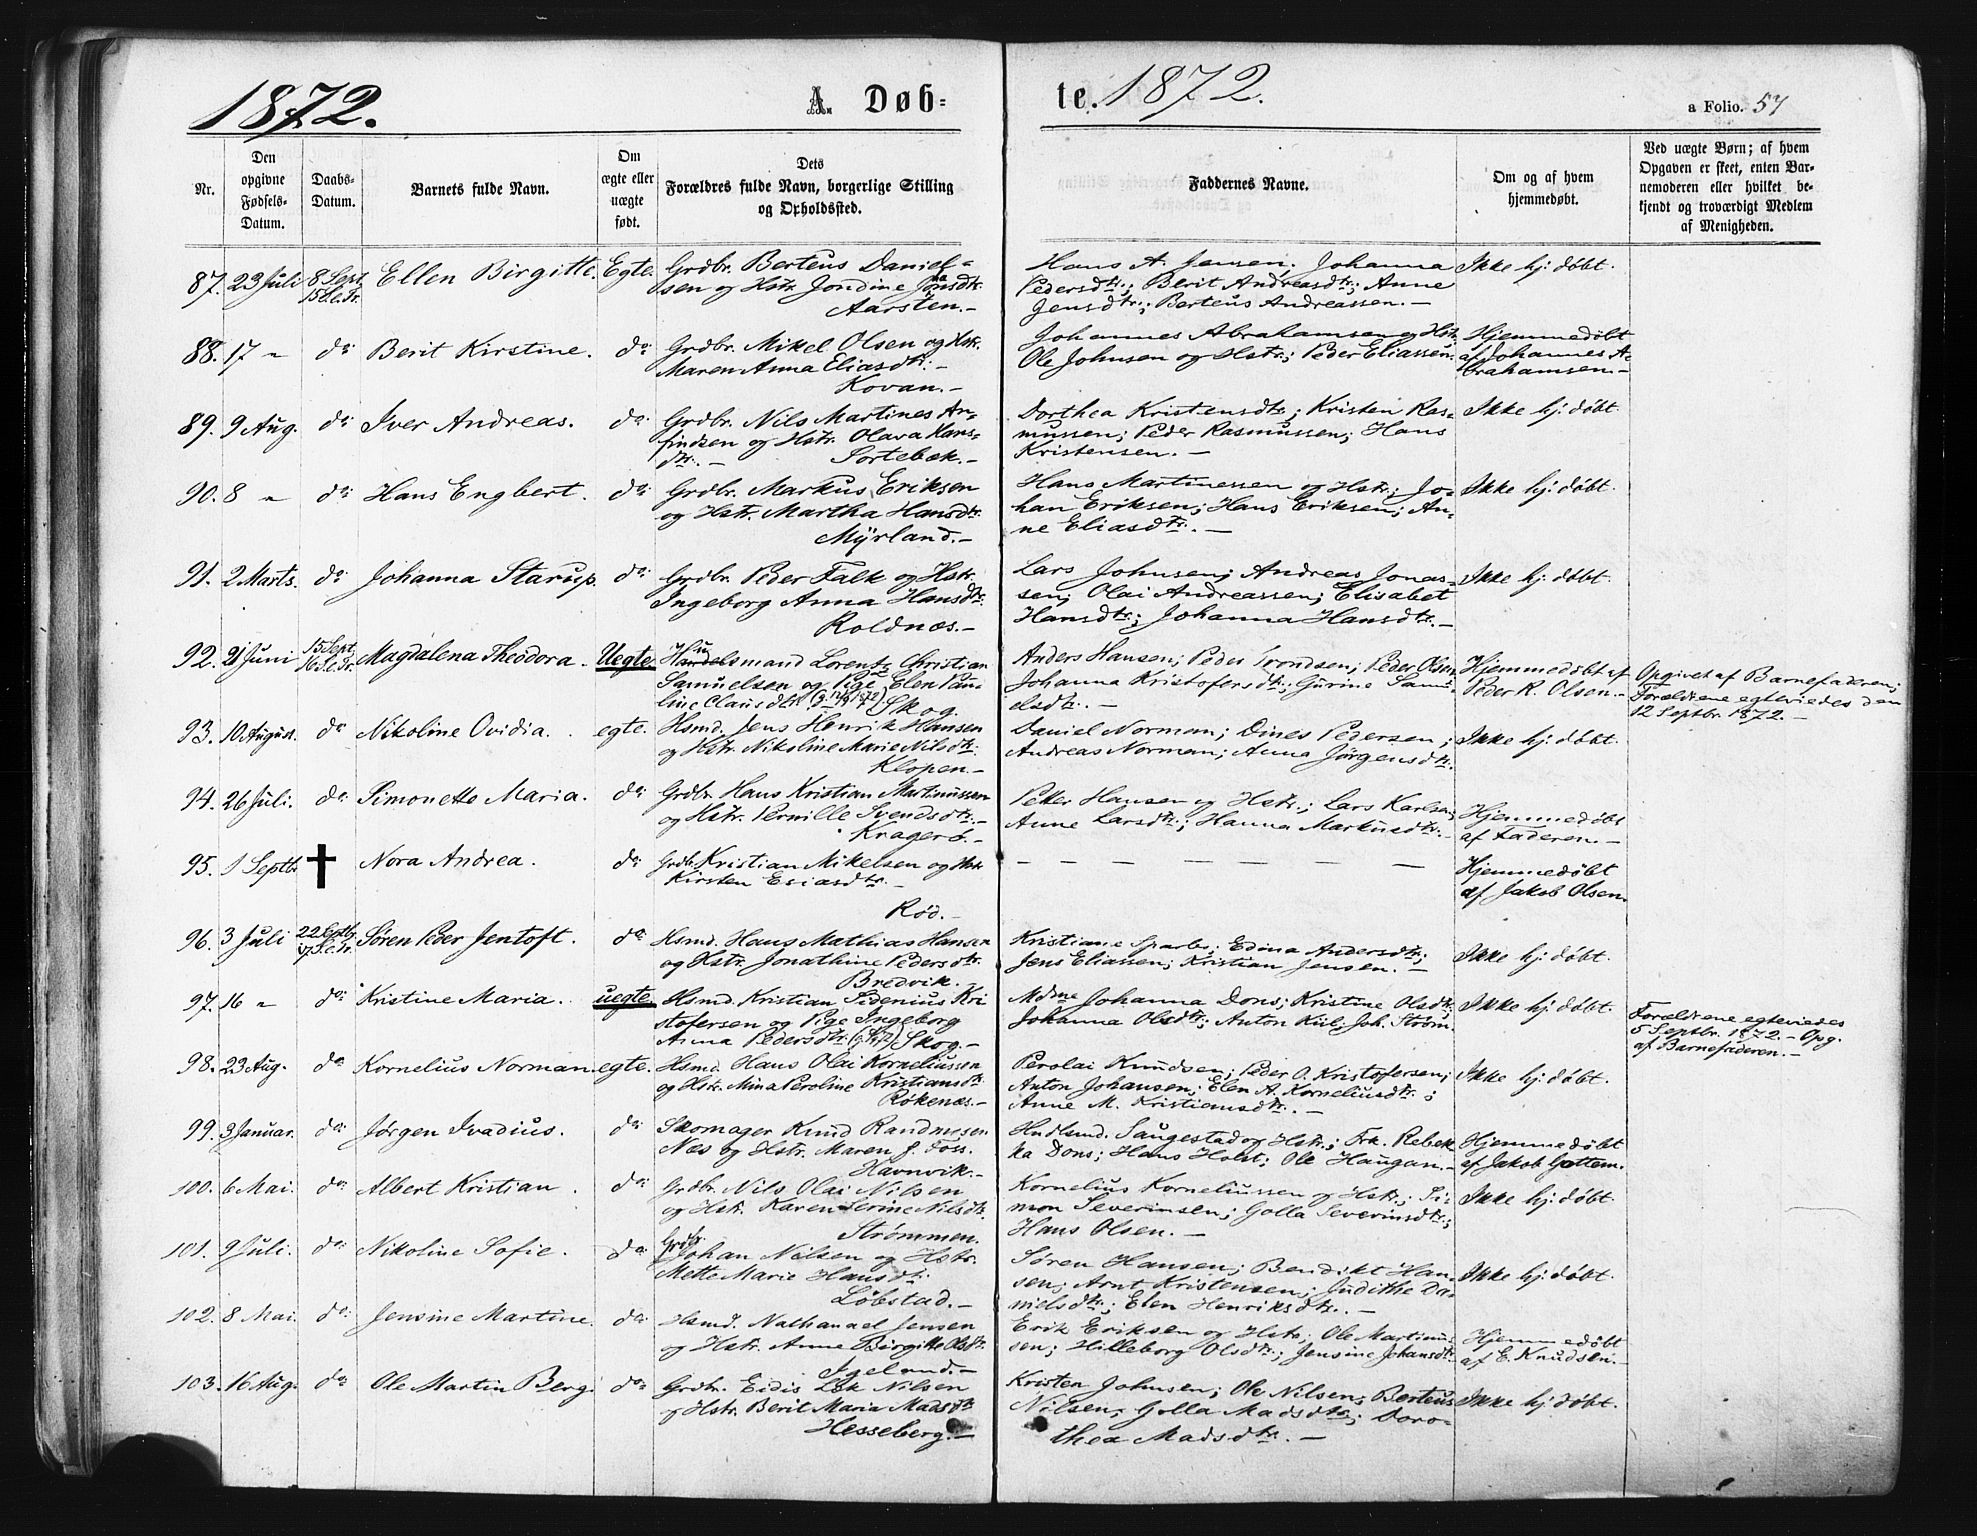 1872. A. Døb= te. 1872. a Folio. 57
Nr.
Den opgivne Fødsels-Datum.
Daabs-Datum.
Barnets fulde Navn.
Om ægte eller uægte født.
Dets Forældres fulde Navn, borgerlige Stilling og Opholdssted.
Faddernes Navne.
Om og af hvem hjemmedøbt.
Ved uægte Børn; af hvem Opgaven er skeet, enten Barnemoderen eller hvilket bekjendt og troværdigt Medlem af Menigheden.
87. 23 Juli 8 Sept. 15 S.e.Tr. Ellen Birgitte. Egte. Grdbr. Berteus Daniel=
sen og Hstr. Jondine Jonsdtr.
Aarsten.-
Hans A. Jensen; Johanna
Pedersdtr.; Berit Andreasdtr.; Anne
Jensdtr.; Berteus Andreassen.-
Ikke hj: døbt.
88. 17 " do Berit Kirstine. do Grdbr. Mikel Olsen og Hstr.
Maren Anna Eliasdtr.-
Kovan.-
Johannes Abrahamsen og Hstr.
Ole Johnsen og Hstr.; Peder Eliassen.
Hjemmedøbt
af Johannes A=
brahamsen.-
89. 9 Aug. do Iver Andreas. do Grdbr. Nils Martines Arn=
findsen og Hstr. Olava Hans=
dtr.- Sortebæk.-
Dorthea Kristensdtr.; Kristen Ras=
mussen; Peder Rasmussen; Hans
Kristensen.-
Ikke hj: døbt.
90. 8 " do Hans Engbert. do Grdbr. Markus Eriksen
og Hstr. Martha Hansdtr.
Myrland.-
Hans Martinessen og Hstr.; Jo=
han Eriksen; Hans Eriksen; An=
ne Eliasdtr.-
Ikke hj: døbt.
91. 2 Marts. do Johanna Starup. do Grdbr. Peder Falk og Hstr.
Ingeborg Anna Hansdtr.
Roldnæs.-
Lars Johnsen; Andreas Jonas=
sen; Olai Andreassen; Elisabet
Hansdtr.; Johanna Hansdtr.-
Ikke hj: døbt.
92. 21 Juni 15 Sept. 16 S.e.Tr. Magdalena Theodora. Uegte. Husmand Lorentz Christian
Samuelsen og Pige Elen Pau=
line Clausdtr. Skog.
Anders Hansen; Peder Trondsen; Peder Olsen
Johanna Kristofersdtr.; Gurine Samu=
elsdtr.-
Hjemmedøbt af
Peder K. Olsen.-
Opgivet af Barnefaderen;
Forældrene egteviedes den
12 Septbr. 1872.-
93. 10 August. do Nikoline Ovidia. egte. Hsmd. Jens Henrik Hansen
og Hstr. Nikoline Marie Nilsdtr.
Klopen.-
Daniel Norman; Dines Pedersen;
Andreas Norman; Anna Jørgensdtr.
Ikke hj: døbt.
94. 26 Juli. do Simonette Maria. do Grdbr. Hans Kristian Martinussen
og Hstr. Pernille Svendsdtr.-
Kragerö.-
Petter Hansen og Hstr.; Lars Karlsen;
Anne Larsdtr.; Hanna Markusdtr.-
Hjemmedøbt
af Faderen.-
95. 1 Septb. † Nora Andrea. do Grdbr. Kristian Mikelsen og Hstr.
Kirsten Esiasdtr.-
Rød.-
- - - - - - -
Hjemmedøbt
af Jakob Olsen.
96. 3 Juli 22 Septb. 17 S.e.Tr. Søren Peder Jentoft. do Hsmd. Hans Mathias Hansen
og Hstr. Jonathine Pedersdtr.
Bredvik.-
Kristiane Sparbo; Edina Andersdtr.;
Jens Eliassen; Kristian Jensen.-
Ikke hj: døbt.
97. 16 " do Kristine Maria. uegte. Hsmd. Kristian Sidenius Kri
stofersen og Pige Ingeborg
Anna Pedersdtr. Skog.-
Mdme Johanna Dons; Kristine Olsdtr.
Johanna Olsdtr.; Anton Kiil; Joh. Strøm.
Ikke hj: døbt.
Forældrene egteviedes
5 Septbr. 1872.- Opg.
af Barnefaderen.-
98. 23 Aug. do Kornelius Norman. egte. Hsmd. Hans Olai Korneliussen
og Hstr. Mina Peroline Kristiansdtr.
Røkenæs.-
Perolai Knudsen; Peder O. Kristofersen;
Anton Johansen; Elen A. Korneliusdtr.;
Anne M. Kristiansdtr.-
Ikke hj: døbt.
99. 3 Januar. do Jørgen Ivadius. do Skomager Knud Randnersen
Næs og Hstr. Maren J. Foss.
Havnvik.-
Hndlsmd. Saugestad og Hstr.; Frk. Rebek
ka Dons; Hans Holst; Ole Haugan.-
Hjemmedøbt
af Jakob Gottem.
100. 6 Mai. do Albert Kristian. do Grdbr. Nils Olai Nilsen
og Hstr. Karen Serine Nilsdtr.
Strømmen.
Kornelius Korneliussen og Hstr.; Si=
mon Severinsen; Golla Severinsdtr.;
Hans Olsen.-
Ikke hj: døbt.
101. 9 Juli. do Nikoline Sofie. do Grdbr.
Johan Nilsen og Hstr.
Mette Marie Hansdtr.
Løbstad.-
Søren Hansen; Bendikt Han=
sen; Arnt Kristensen; Judithe Da=
nielsdtr.; Elen Henriksdtr.-
Ikke hj: døbt.
102. 8 Mai. do Jensine Martine. do Hsmd. Nathanael Jensen
og Hstr. Anne Birgitte Olsdtr.
Igeland.-
Erik Eriksen og Hstr.; Ole Martinus=
sen; Hilleborg Olsdtr.; Jensine Johansdtr.
Hjemmedøbt
af E. Knudsen.-
103. 16 Aug. do Ole Martin Berg. do Grdbr. Eidis Lek Nilsen
og Hstr. Berit Maria Madsdtr.
Hesseberg.-
Kristen Johnsen; Ole Nilsen; Berteus
Nilsen; Golla Madsdtr.; Doro=
thea Madsdtr.-
Ikke hj: døbt.